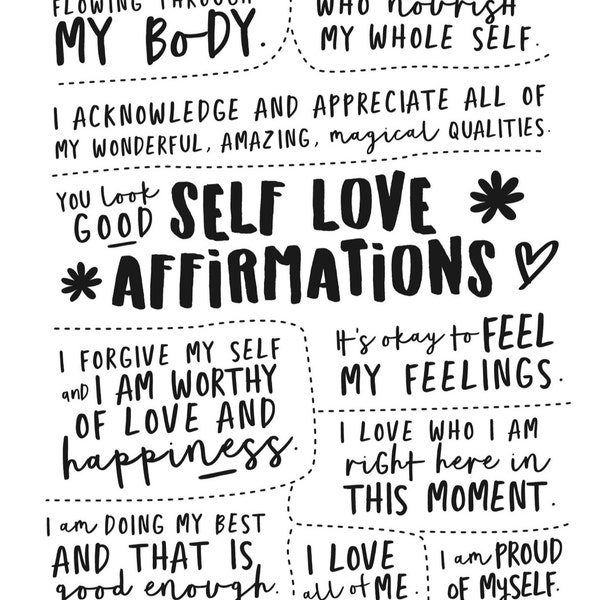 FLOWING THROUGH
MY BODY.
WHO nourish
MY WHOLE SELF.
I ACKNOWLEDGE AND APPRECIATE ALL OF
MY WONDERFUL, AMAZING, magical QUALITIES.
YOU look
GOOD
SELF LOVE
AFFiRMATiONS
I FORGIVE MY SELF
and I AM WORTHY
OF LOVE AND
happiness.
It's okay to FEEL
MY FEELINGS.
I LOVE WHO I AM
riGht here in
THIS MOMENT.
I am DOING MY BEST
AND THAT IS
good enough.
I LOVE
all of ME.
I am PROUD
OF MySELF.